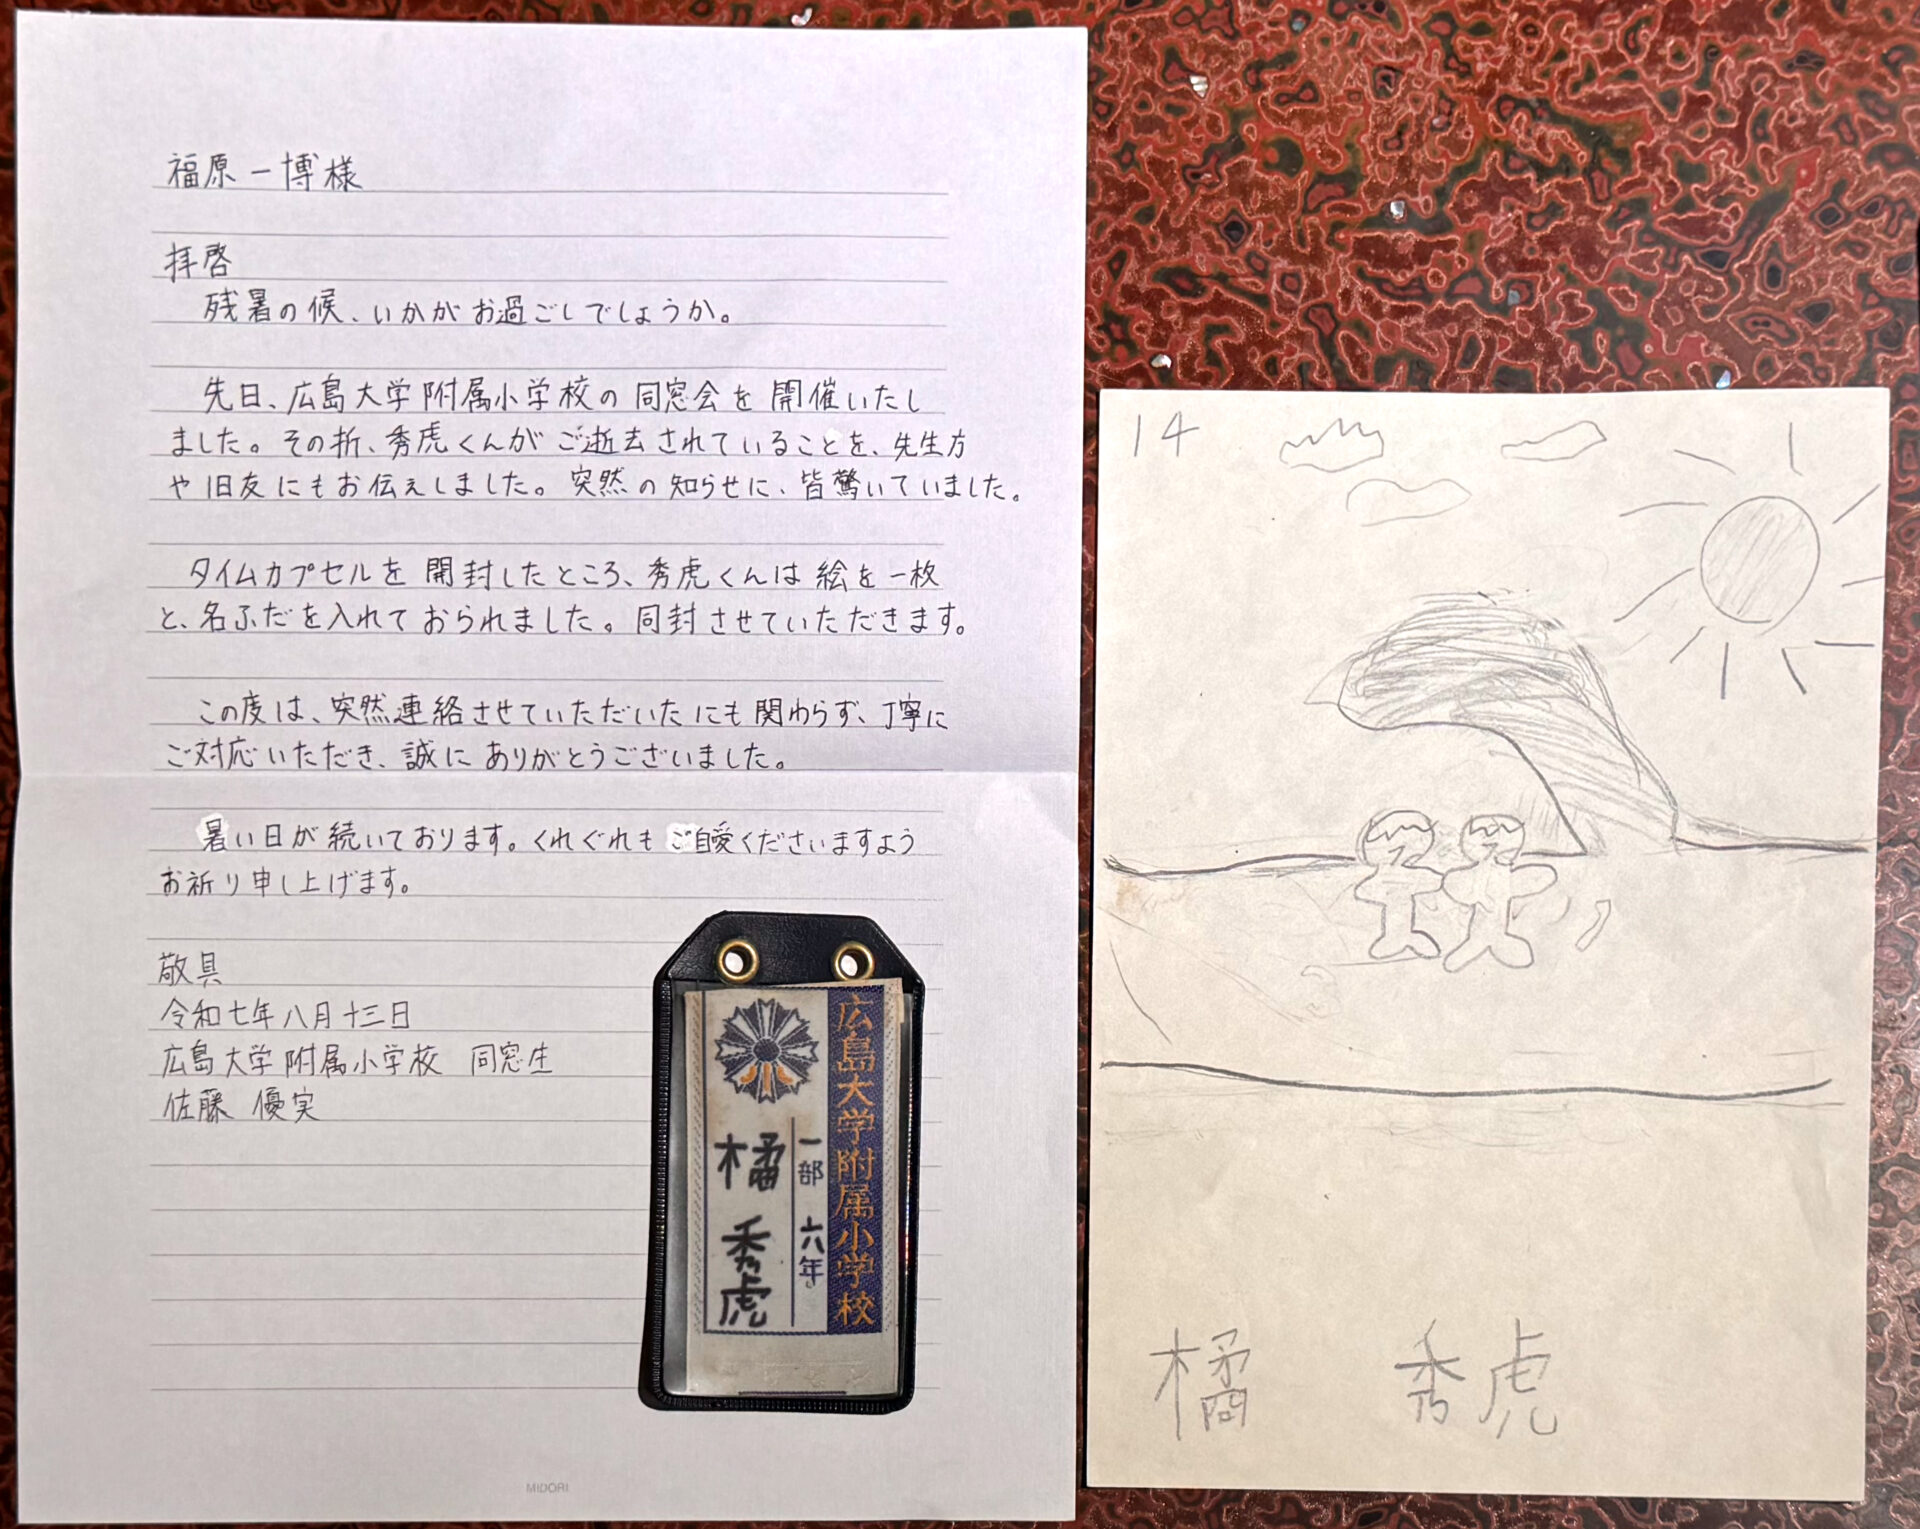 福原一博様
拝啓
残暑の候、いかがお過ごしでしょうか。
先日、広島大学附属小学校の同窓会を開催いたし
ました。その折、秀虎くんがご逝去されていることを、先生方
や旧友にもお伝えしました。突然の知らせに、皆驚いていました。
タイムカプセルを開封したところ、秀虎くんは絵を一枚
と、名ふだを入れておられました。同封させていただきます。
この度は、突然連絡させていただいたにも関わらず、丁寧に
ご対応いただき、誠にありがとうございました。
暑い日が続いております。くれぐれもご自愛くださいますよう
お祈り申し上げます。
敬具
令和七年八月十三日
広島大学附属小学校 同窓生
佐藤 優実
MIDORI
広島大学附属小学校
一部 六年
橘 秀虎
14
橘 秀虎